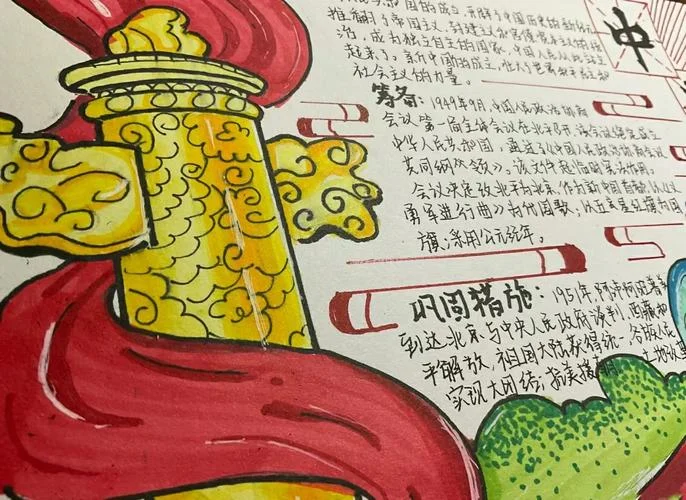 中国的成立,开辟了中国历史的新纪元
推翻了帝国主义、封建主义和官僚资本主义的统
治,成为独立自主的国家,中国人民从此站立
起来了。新中国的成立,壮大了世界和平民主和
社会主义的力量。
中
筹备:1949年9月,中国人民政治协商
会议第一届全体会议在北平召开,该会议决定成立
中华人民共和国,通过了《中国人民政治协商会议
共同纲领》。该文件起临时宪法作用。
会议决定改北平为北京,作为新中国首都,以《义
勇军进行曲》为代国歌,以五星红旗为国
旗,采用公元纪年。
巩固措施:1951年,阿沛·阿旺晋美
到达北京与中央人民政府谈判,西藏和
平解放,祖国大陆获得统一,各族人民
实现大团结,抗美援朝 土地改革